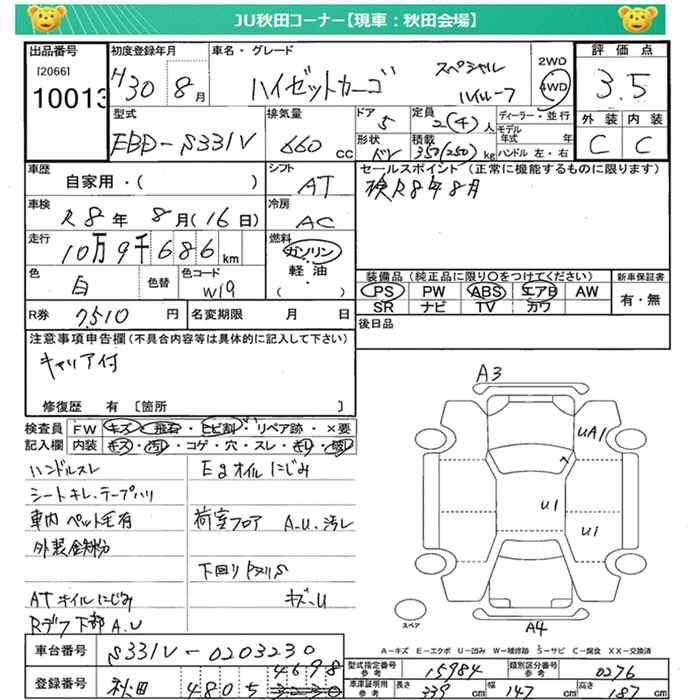 JU秋田コーナー【現車：秋田会場】
出品番号
[2066]
10013
初度登録年月
H30 8月
車名・グレード
ハイゼットカーゴ
スペシャル
ハイルーフ
2WD
4WD
評価点
3.5
外装 内装
C C
型式
EBD-S331V
排気量
660 cc
ドア
5
定員
2(4)人
形状
バン
積載
350(250)kg
ディーラー・並行
モデル年式 年
ハンドル 左・右
車歴
自家用・( )
シフト
AT
セールスポイント（正常に機能するものに限ります）
検R8年8月
車検
R8年 8月(16日)
冷房
AC
走行
10万9千686km
燃料
ガソリン
軽・油
( )
色
白
色替
色コード
W19
装備品（純正品に限り○をつけてください）
PS PW ABS エアB AW
SR ナビ TV カワ
新車保証書
有・無
R券
7,510円
名変期限 月 日
後日品
注意事項申告欄（不具合内容等は具体的に記入して下さい）
キャリア付
修復歴 有 〔箇所 〕
検査員記入欄
FW キズ・飛石・ヒビ割・リペア跡・×要
内装 キズ・汚れ・コゲ・穴・スレ・キレ・破れ
ハンドルスレ
シートキレ・テープハリ
車内ペット毛有
外装鉄粉
ATオイルにじみ
Rデフ下部A.U
Egオイルにじみ
荷室フロア A.U.汚レ
下回り
キズ.U
A3
UA1
U1
U1
A4
スペア
A－キズ E－エクボ U－凹み W－補修跡 S－サビ C－腐食 XX－交換済
車台番号
S331V-0203230
登録番号
秋田 480 5 3230
4698
型式指定番号 参考
15984
類別区分番号 参考
0276
車庫証明用 参考
長さ 339cm
幅 147cm
高さ 187cm